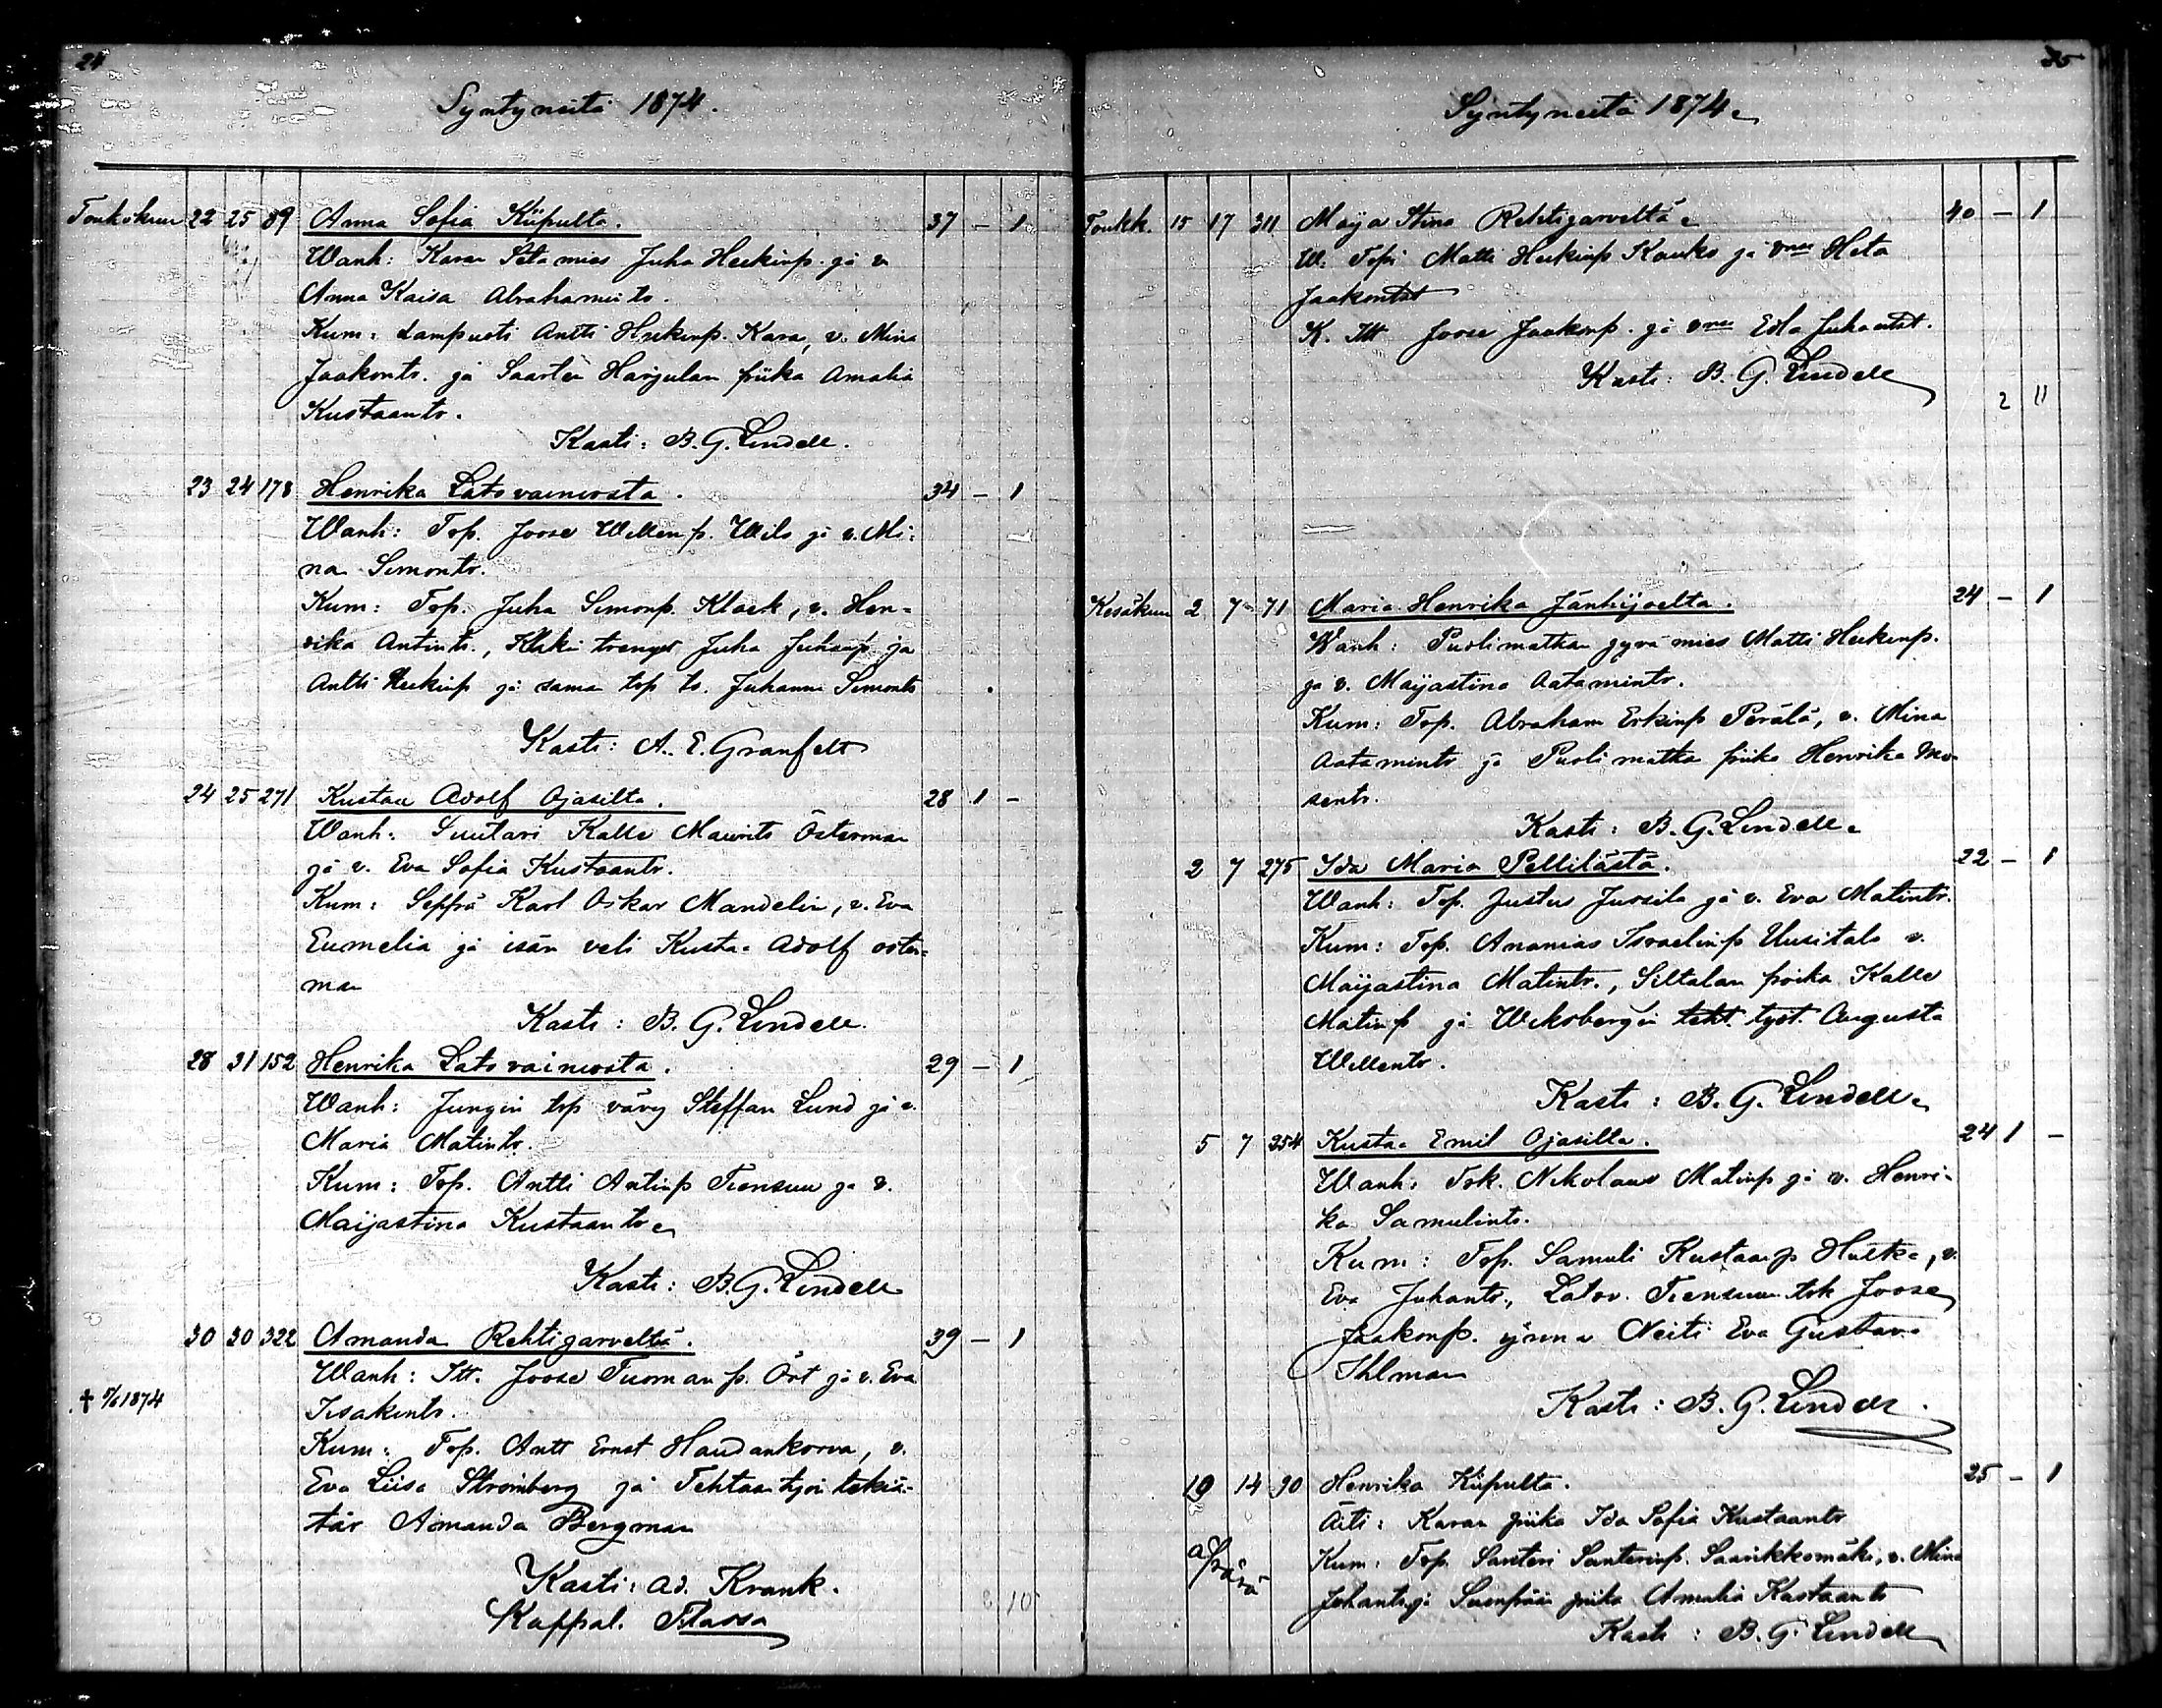 24
Syntyneitä 1874.
Toukokuu 22 25 89 Anna Sofia Kiipulta. 37 - 1
Wanh: Karan Sätamies Juha Heikinp. ja v.
Anna Kaisa Abrahamintr.
Kum: Lampuoti Antti Heikinp. Kara, v. Mina
Jaakontr. ja Saarten Harjulan piika Amalia
Kustaantr.
Kasti: B. G. Lindell.
23 24 178 Henrika Latovainiosta. 34 - 1
Wanh: Top. Joose Willenp. Wils ja v. Mi-
na Simontr.
Kum: Top. Juha Simonp. Klack, v. Hen-
rika Antintr., Klaki trengit Juha Juhanp ja
Antti Heikinp ja saman top tr. Juhanna Simontr
Kasti: A. E. Granfelt
24 25 271 Kustaa Adolf Ojasilta. 28 1 -
Wanh: Suutari Kalle Maurits Österman
ja v. Eva Sofia Kustaantr.
Kum: Seppä Karl Oskar Mandelin, v. Eva
Eumelia ja isän veli Kustaa Adolf öster-
man
Kasti: B. G. Lindell.
28 31 152 Henrika Latovainiosta. 29 - 1
Wanh: Jungin top vävy Steffan Lund ja v.
Maria Matintr.
Kum: Top. Antti Antinp Tiensuu ja v.
Maijastina Kustaantr.
Kasti: B. G. Lindell
30 30 322 Amanda Rehtijarveltä. 39 - 1
Wanh: Itt. Joose Tuomanp. Ört ja v. Eva
† 5/6 1874
Iisakintr.
Kum: Top. Antt Ernst Haudankorva, v.
Eva Liisa Strömberg ja Tehtaan työn tekiä-
tär Amanda Bergman
Kasti: Ad. Krank.
Kappal.
10
25
Syntyneitä 1874.
Toukk. 15 17 311 Maija Stina Rehtijarveltä. 40 - 1
W. Top. Matti Heikinp Kauko ja vmo Heta
Jaakontxt
K. Itt Joose Jaakonp. ja vmo Edla Juhantxt.
Kasti: B. G. Lindell
2 11
Kesäkuu 2 7 71 Maria Henrika Jänhijoelta. 24 - 1
Wanh: Puolimatkan jyvämies Matti Heikinp.
ja v. Maijastina Aatamintr.
Kum: Top. Abraham Erkinp Perälä, v. Mina
Aatamintr ja Puolimatka piika Henrika Mo-
sentr.
Kasti: B. G. Lindell.
2 7 275 Ida Maria Pellilästä. 22 - 1
Wanh: Top. Justus Jussila ja v. Eva Matintr.
Kum: Top. Ananias Israelinp Uusitalo v.
Maijastina Matintr., Siltalan poika Kalle
Matinp ja Wiksbergin teht. työt. Augusta
Willentr.
Kasti: B. G. Lindell.
5 7 254 Kustaa Emil Ojasilta. 24 1 -
Wanh: Tok. Nikolaus Matinp ja v. Henri-
ka Samulintr.
Kum: Top. Samuli Kustaanp Huitka, v.
Eva Juhantr., Latov. Tiensuun tok Joose
Jaakonp. ynnä Neiti Eva Gustava
Ihlman
Kasti: B. G. Lindell.
19 14 90 Henrika Kiipulta. 25 - 1
Äiti: Karan piika Ida Sofia Kustaantr
apärä
Kum: Top. Santeri Santerinp. Saarikkomäki, v. Mina
Johantr. ja Suenpään piika Amalia Kustaantr
Kasti: B. G. Lindell